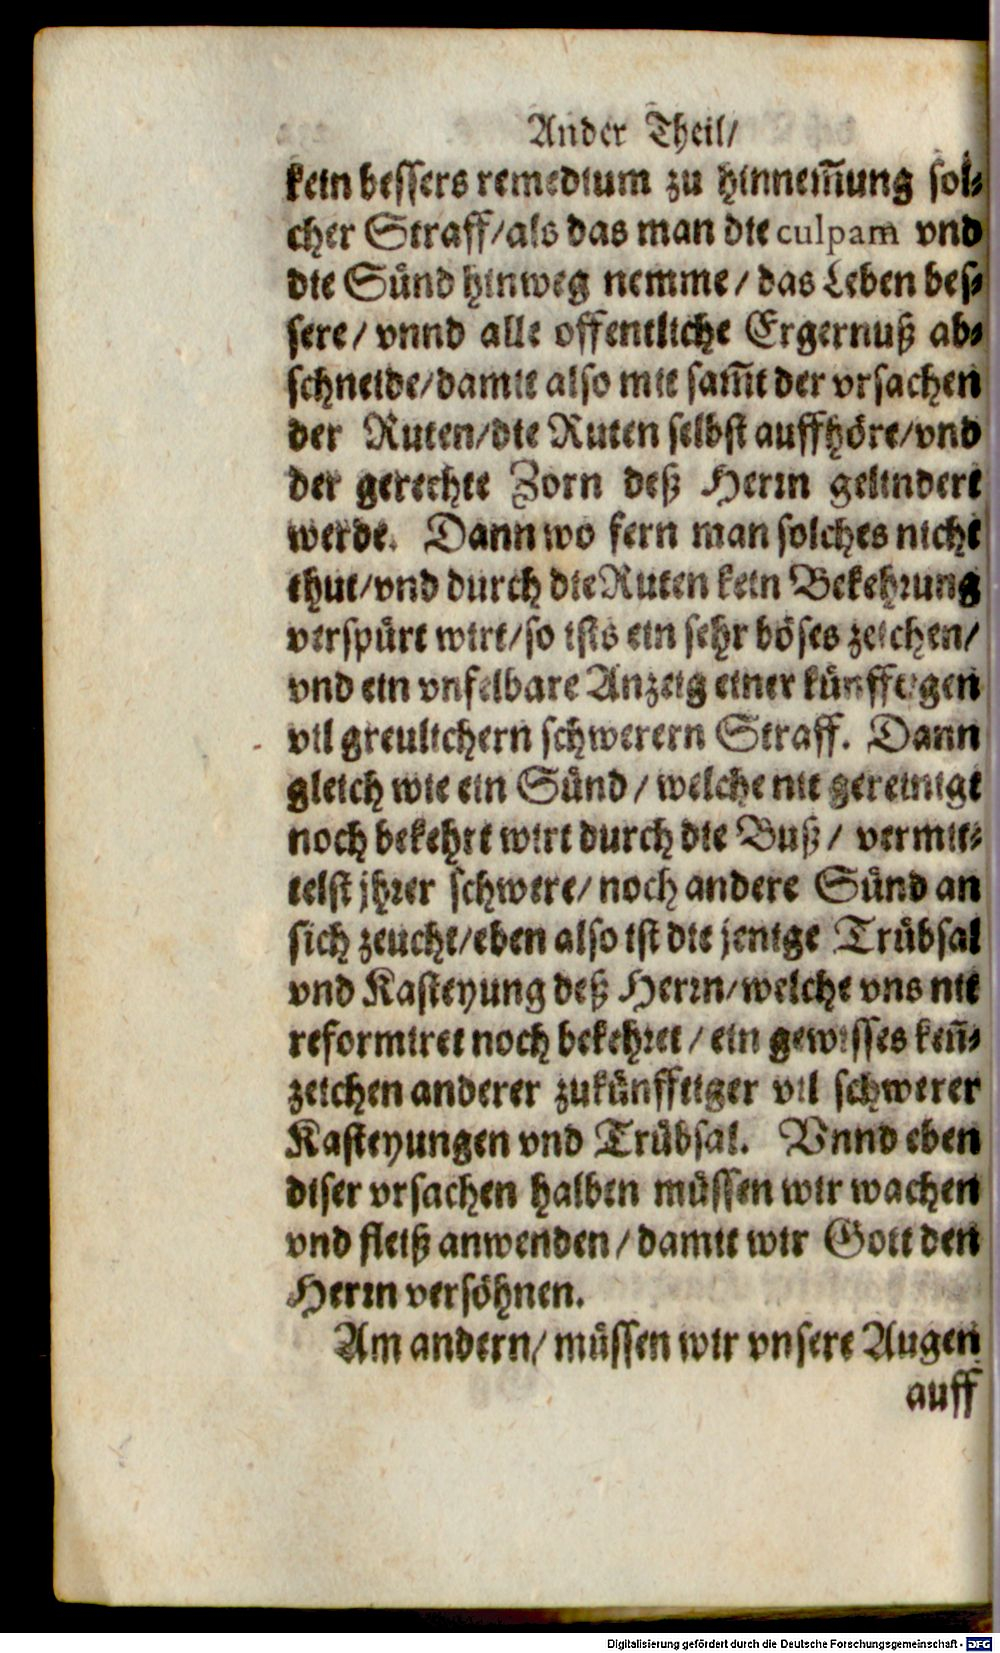 Ander Theil/
kein bessers remedium zu hinnem̃ung sol⸗
cher Straff/als das man die culpam vnd
die Sünd hinweg nemme/ das Leben bes⸗
sere/ vnnd alle offentliche Ergernuß ab⸗
schneide/damit also mit sam̃t der vrsachen
der Ruten/die Ruten selbst auffhöre/vnd
der gerechte Zorn deß Herrn gelindert
werde. Dann wo fern man solches nicht
thut/vnd durch die Ruten kein Bekehrung
verspürt wirt/so ists ein sehr böses zeichen/
vnd ein vnfelbare Anzeig einer künfftigen
vil greulichern schwerern Straff. Dann
gleich wie ein Sünd/ welche nit gereinigt
noch bekehrt wirt durch die Buß/ vermit⸗
telst jhrer schwere/noch andere Sünd an
sich zeucht/eben also ist die jenige Trübsal
vnd Kasteyung deß Herrn/welche vns nit
reformiret noch bekehret/ ein gewisses keñ⸗
zeichen anderer zukünfftiger vil schwerer
Kasteyungen vnd Trübsal. Vnnd eben
diser vrsachen halben müssen wir wachen
vnd fleiß anwenden/damit wir Gott den
Herrn versöhnen.
Am andern/ müssen wir vnsere Augen
auff
Digitalisierung gefördert durch die Deutsche Forschungsgemeinschaft - DFG